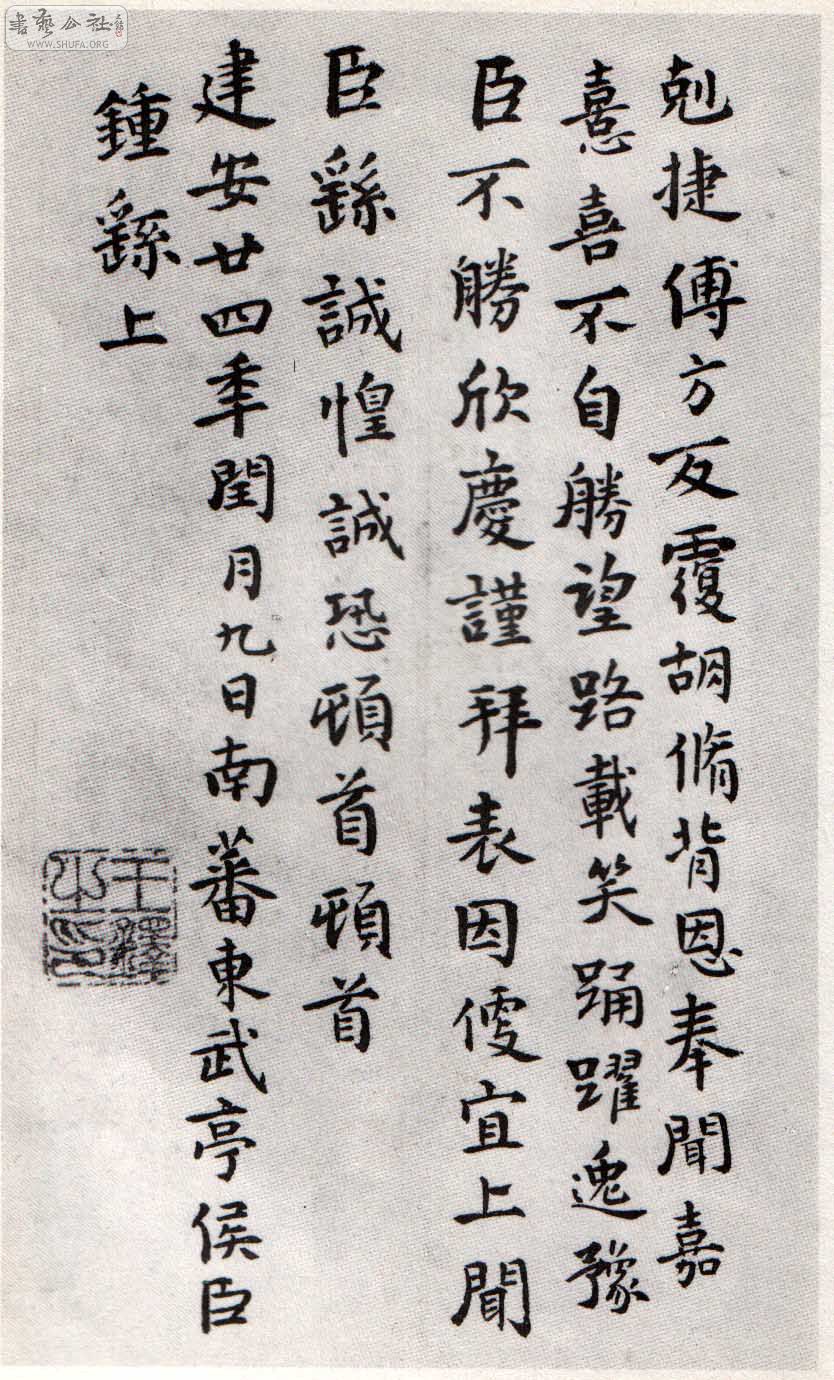 剋捷傅方反覆胡脩背恩奉聞嘉
憙喜不自勝望路載笑踊躍逸豫
臣不勝欣慶謹拜表因便宜上聞
臣繇誠惶誠恐頓首頓首
建安廿四年閏月九日南蕃東武亭侯臣
鍾繇上
王鐸之印
書藝公社
WWW.SHUFA.ORG